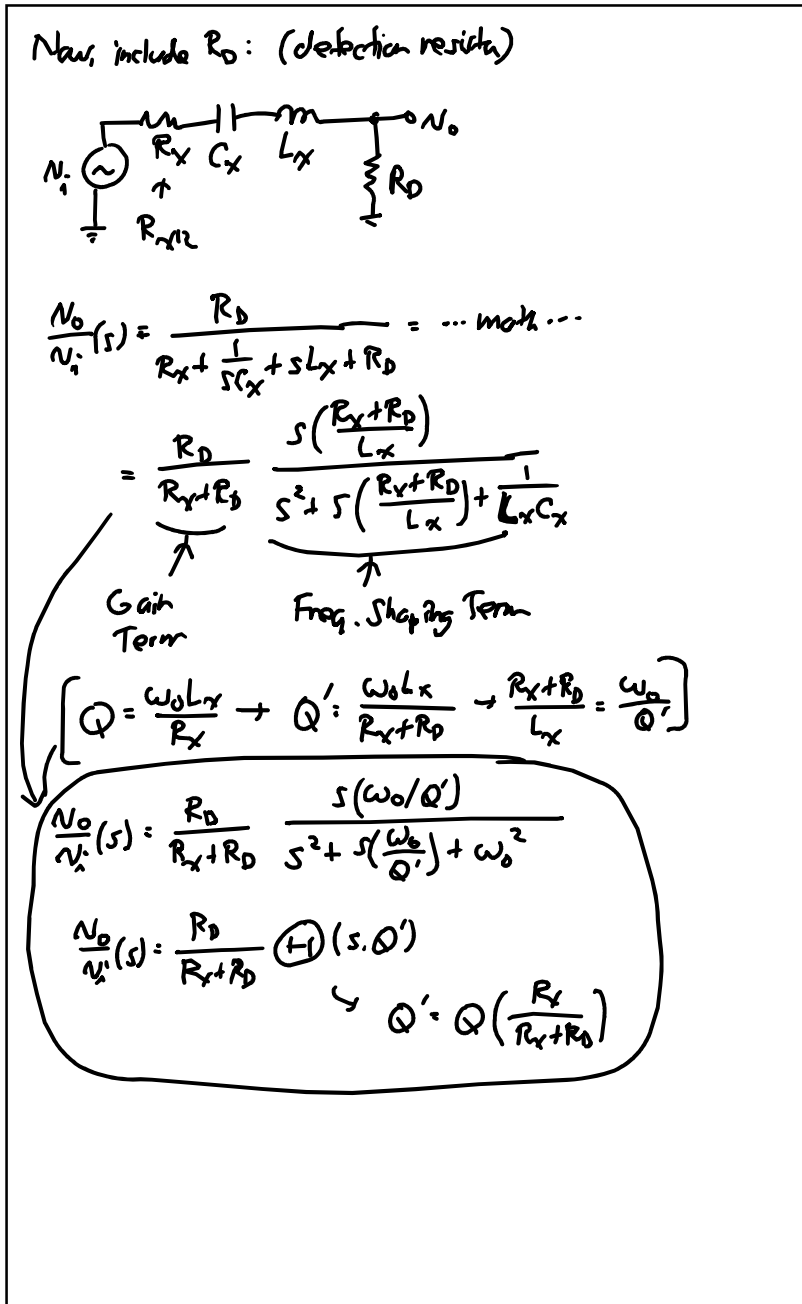 Now, include R_D: (detection resistor)
R_x C_x L_x N_o
N_i R_D
R_x12
N_o/N_i (s) = R_D / (R_x + 1/(sC_x) + sL_x + R_D) = ... math ...
= R_D/(R_x+R_D) · s((R_x+R_D)/L_x) / (s² + s((R_x+R_D)/L_x) + 1/(L_xC_x))
Gain Freq. Shaping Term
Term
[Q = ω_0L_x/R_x → Q' = ω_0L_x/(R_x+R_D) → (R_x+R_D)/L_x = ω_0/Q']
N_o/N_i (s) = R_D/(R_x+R_D) · s(ω_0/Q') / (s² + s(ω_0/Q') + ω_0²)
N_o/N_i (s) = R_D/(R_x+R_D) Ⓗ (s, Q')
↳ Q' = Q (R_x/(R_x+R_D))